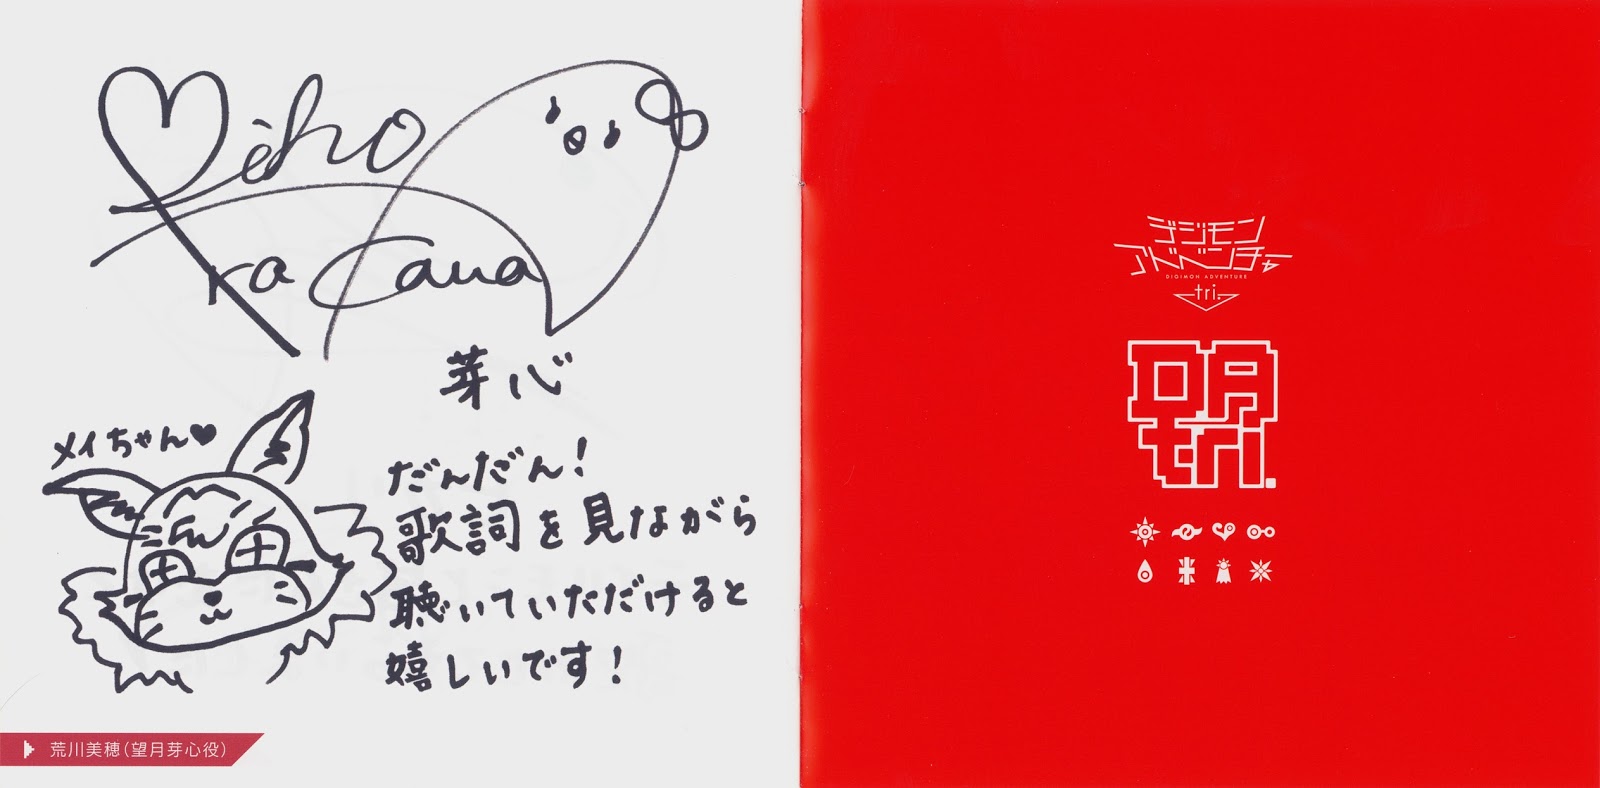 Miho
Arakawa
芽心
メイちゃん♥
だんだん!
歌詞を見ながら
聴いていただけると
嬉しいです!
荒川美穂(望月芽心役)
デジモン
アドベンチャー
DIGIMON ADVENTURE
tri.
DA
tri.